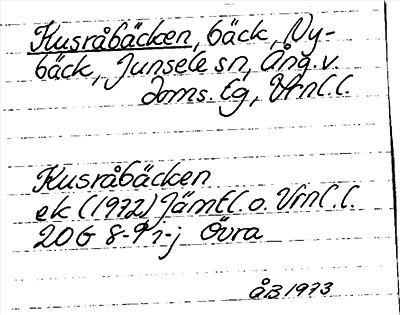 Kusråbäcken, bäck, Ny-
bäck, Junsele sn, Ång. v.
doms. lg, Vrnl. l.
Kusråbäcken
ek (1972) Jämtl. o. Vrnl. l.
20G 8-9 i-j Övra
ÅB 1973